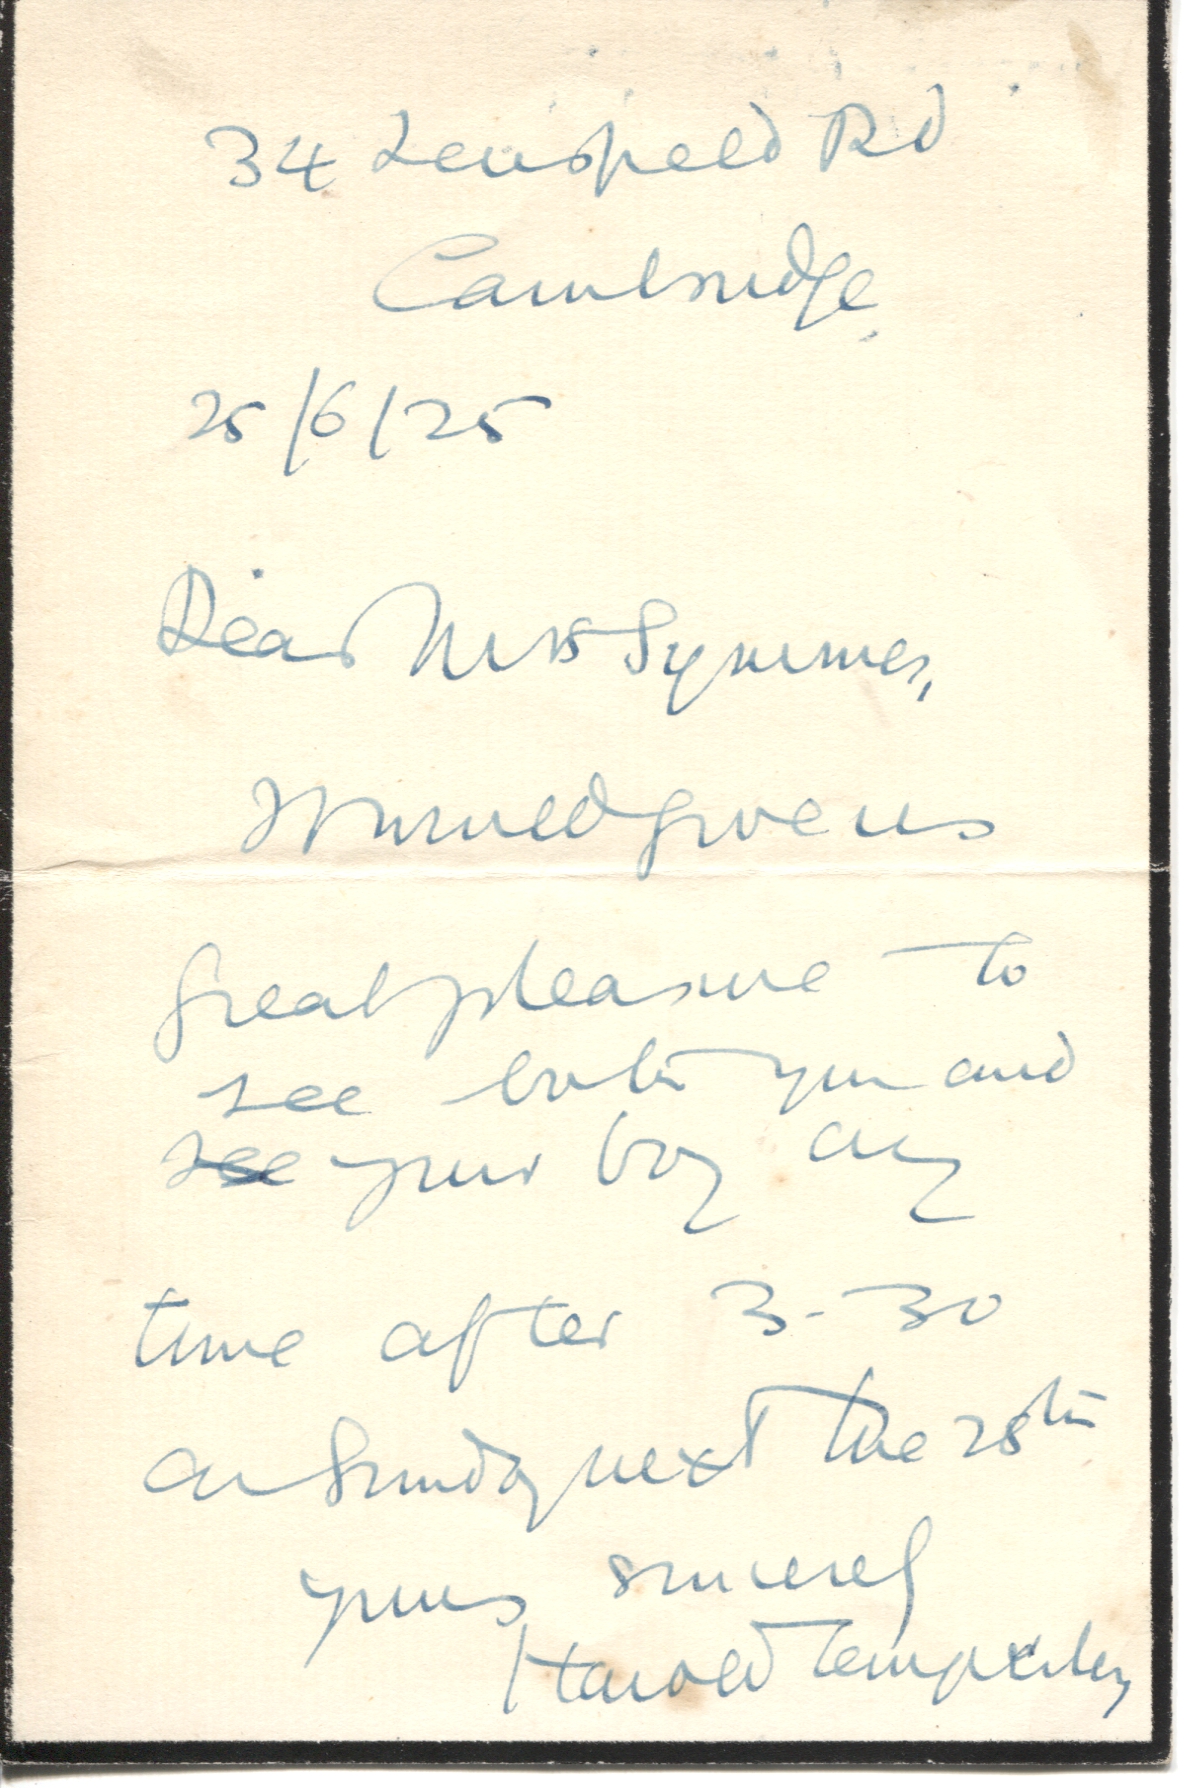 34 Lensfield Rd
Cambridge
25/6/25
Dear Mrs Symmes,
It would give us
great pleasure to
see both you and
see your boy any
time after 3-30
on Sunday next the 28th
yours sincerely
Harold Temperley